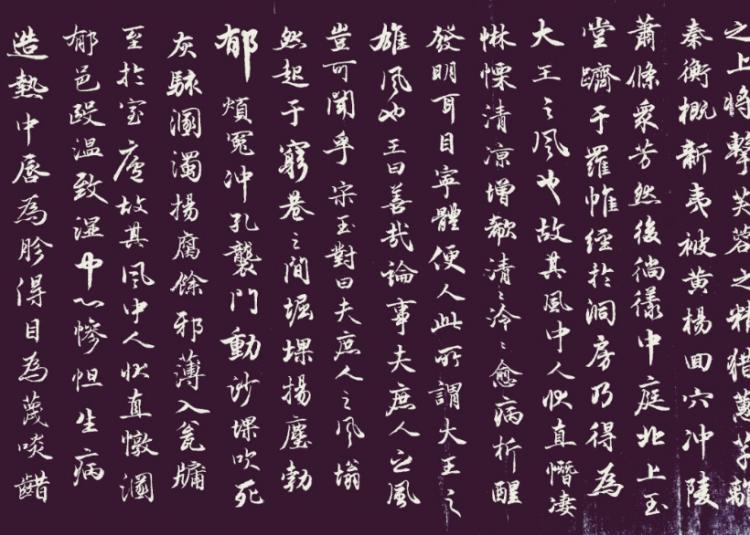 之上將擊芙蓉之精獵蕙草離
秦衡概新夷被黃楊囬穴冲陵
蕭條衆芳然後徜徉中庭北上玉
堂躋于羅帷經於洞房乃得為
大王之風也故其風中人狀直憯凄
惏慄清凉增欷清〻泠〻愈病析酲
發明耳目寧體便人此所謂大王之
雄風也王曰善哉論事夫庶人之風
豈可聞乎宋玉對曰夫庶人之風塕
然起于窮巷之間堀堁揚塵勃
郁煩冤冲孔襲門動沙堁吹死
灰駭溷濁揚腐餘邪薄入瓮牖
至於室廬故其風中人狀直憞溷
郁邑毆温致濕中心慘怛生病
造熱中唇為胗得目為蔑啖齰